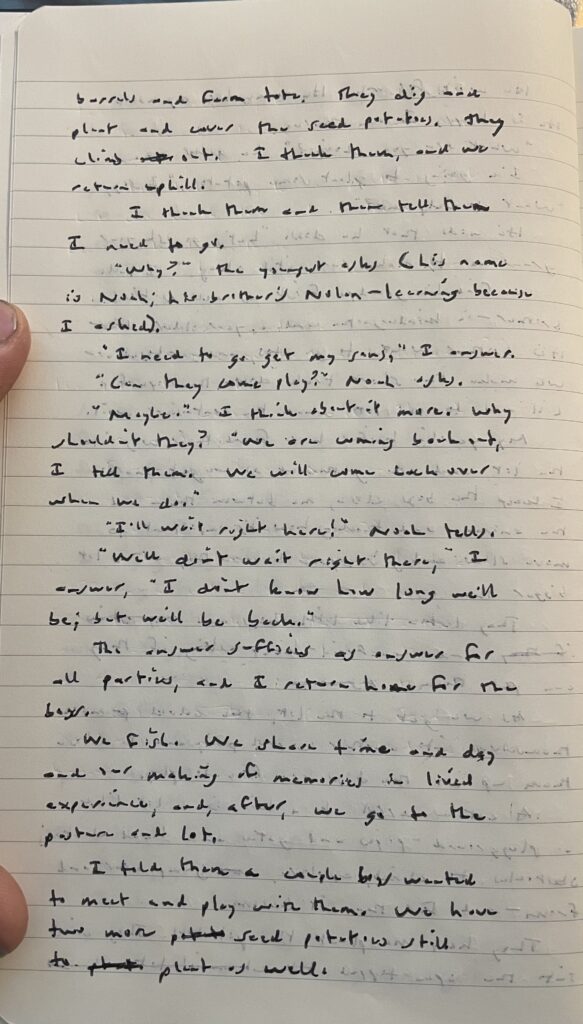 barrels and farm tote. They dig and
plant and cover the seed potatoes. They
climb out. I thank them, and we
return uphill.
I thank them and then tell them
I need to go.
"Why?" the youngest asks (his name
is Noah; his brother's Nolan—learning because
I asked).
"I need to go get my sons," I answer.
"Can they come play?" Noah asks.
"Maybe." I think about it more. Why
shouldn't they? "We are coming back out,
I tell them. We will come back over
when we do."
"I'll wait right here!" Noah tells.
"Well don't wait right there," I
answer, "I don't know how long we'll
be; but we'll be back."
The answer suffices as answer for
all parties, and I return home for the
boys.
We fish. We share time and day
and our making of memories in lived
experience, and, after, we go to the
pasture and lot.
I told them a couple boys wanted
to meet and play with them. We have
two more seed potatoes still
to plant as well.